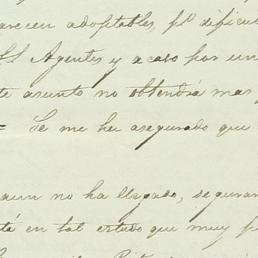 arecen adoptables, pr. dificul
Agentes y acaso por un
te asunto no obtendrá mas
= Se me ha asegurado que
aun no ha llegado, seguram
té en tal estado que muy